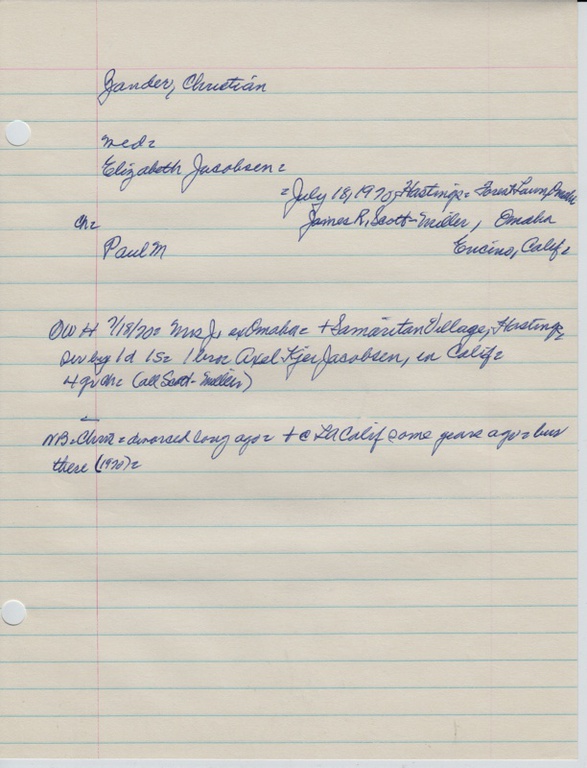 Zander, Christian
med=
Elizabeth Jacobsen=
= July 18, 1970= Hastings= Forest Lawn, Omaha
Ch= James R. Scott-Miller, Omaha
Paul M Encino, Calif=
OWH 7/18/70= Mrs J, ex Omaha= + Samaritan Village, Hastings=
Surv by 1 d 1 s= 1 bro= Axel Kjer Jacobsen, in Calif=
4 gr ch= (all Scott-Millers)
NB= Chris= divorsed long ago= + @ LA Calif some years ago= bur
there (1970)=